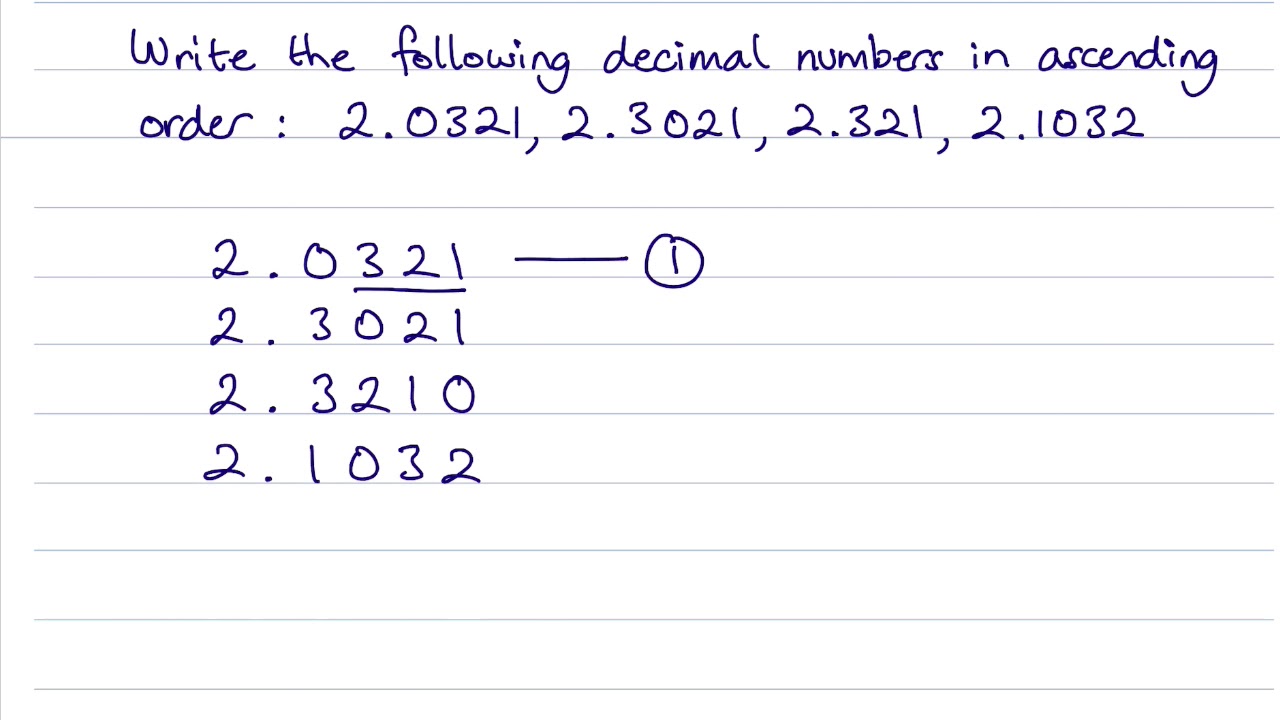 Write the following decimal numbers in ascending
order : 2.0321, 2.3021, 2.321, 2.1032
2.0321 —— ①
2.3021
2.3210
2.1032